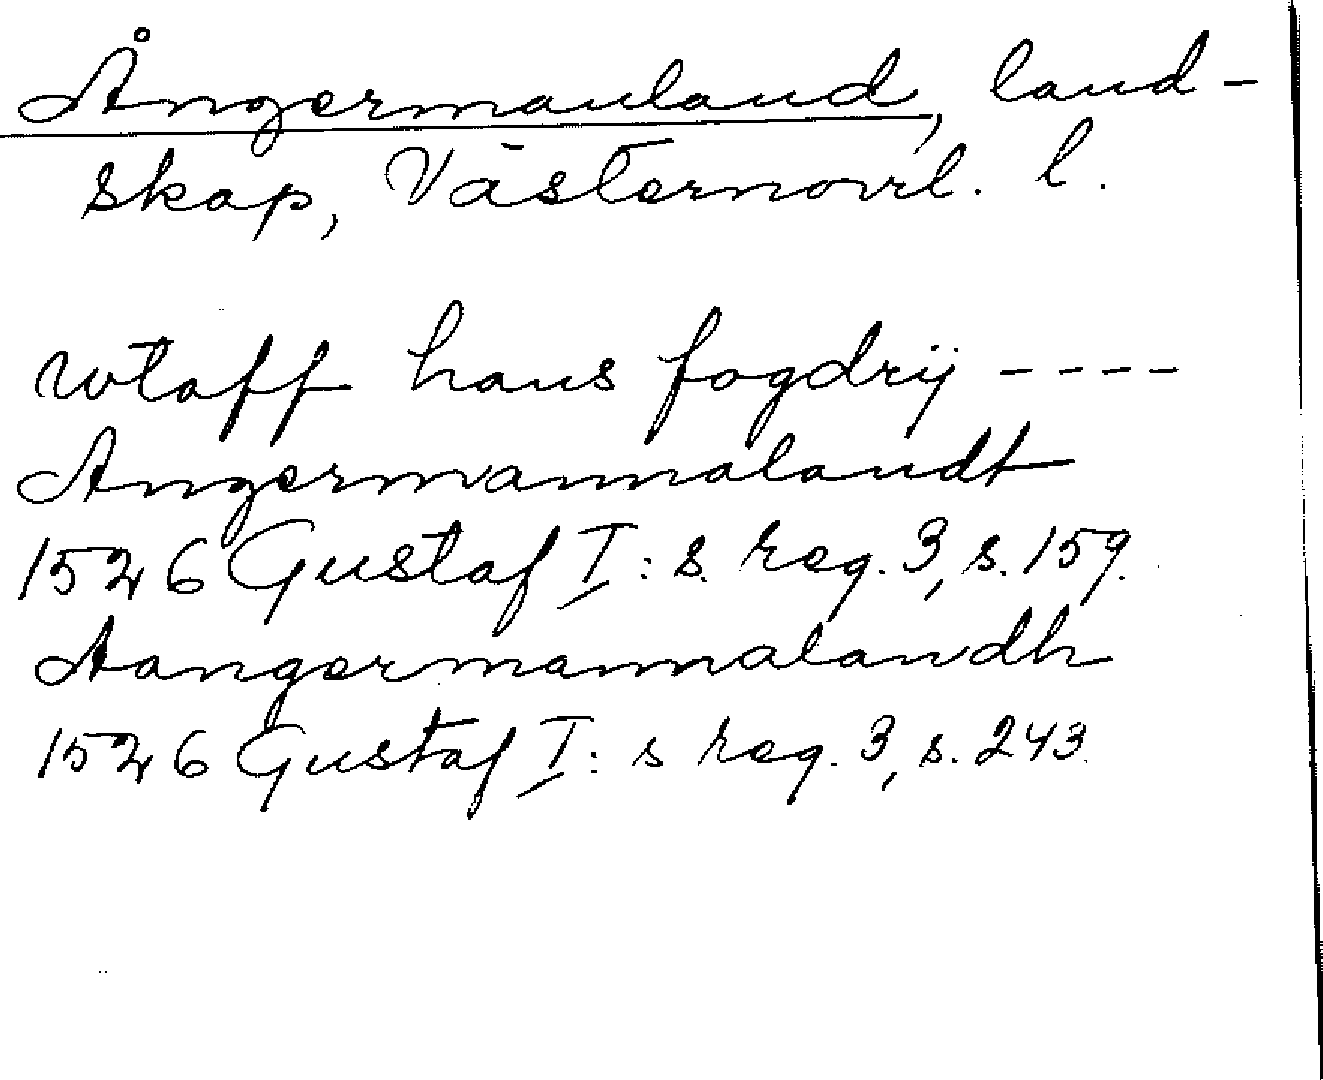 Ångermanland, land-
skap, Västernorrl. l.
wtaff hans fogdrij ----
Angermannalandt
1526 Gustaf I: s. reg. 3, s. 159.
Aangermannalandh
1526 Gustaf I: s reg. 3, s. 243.